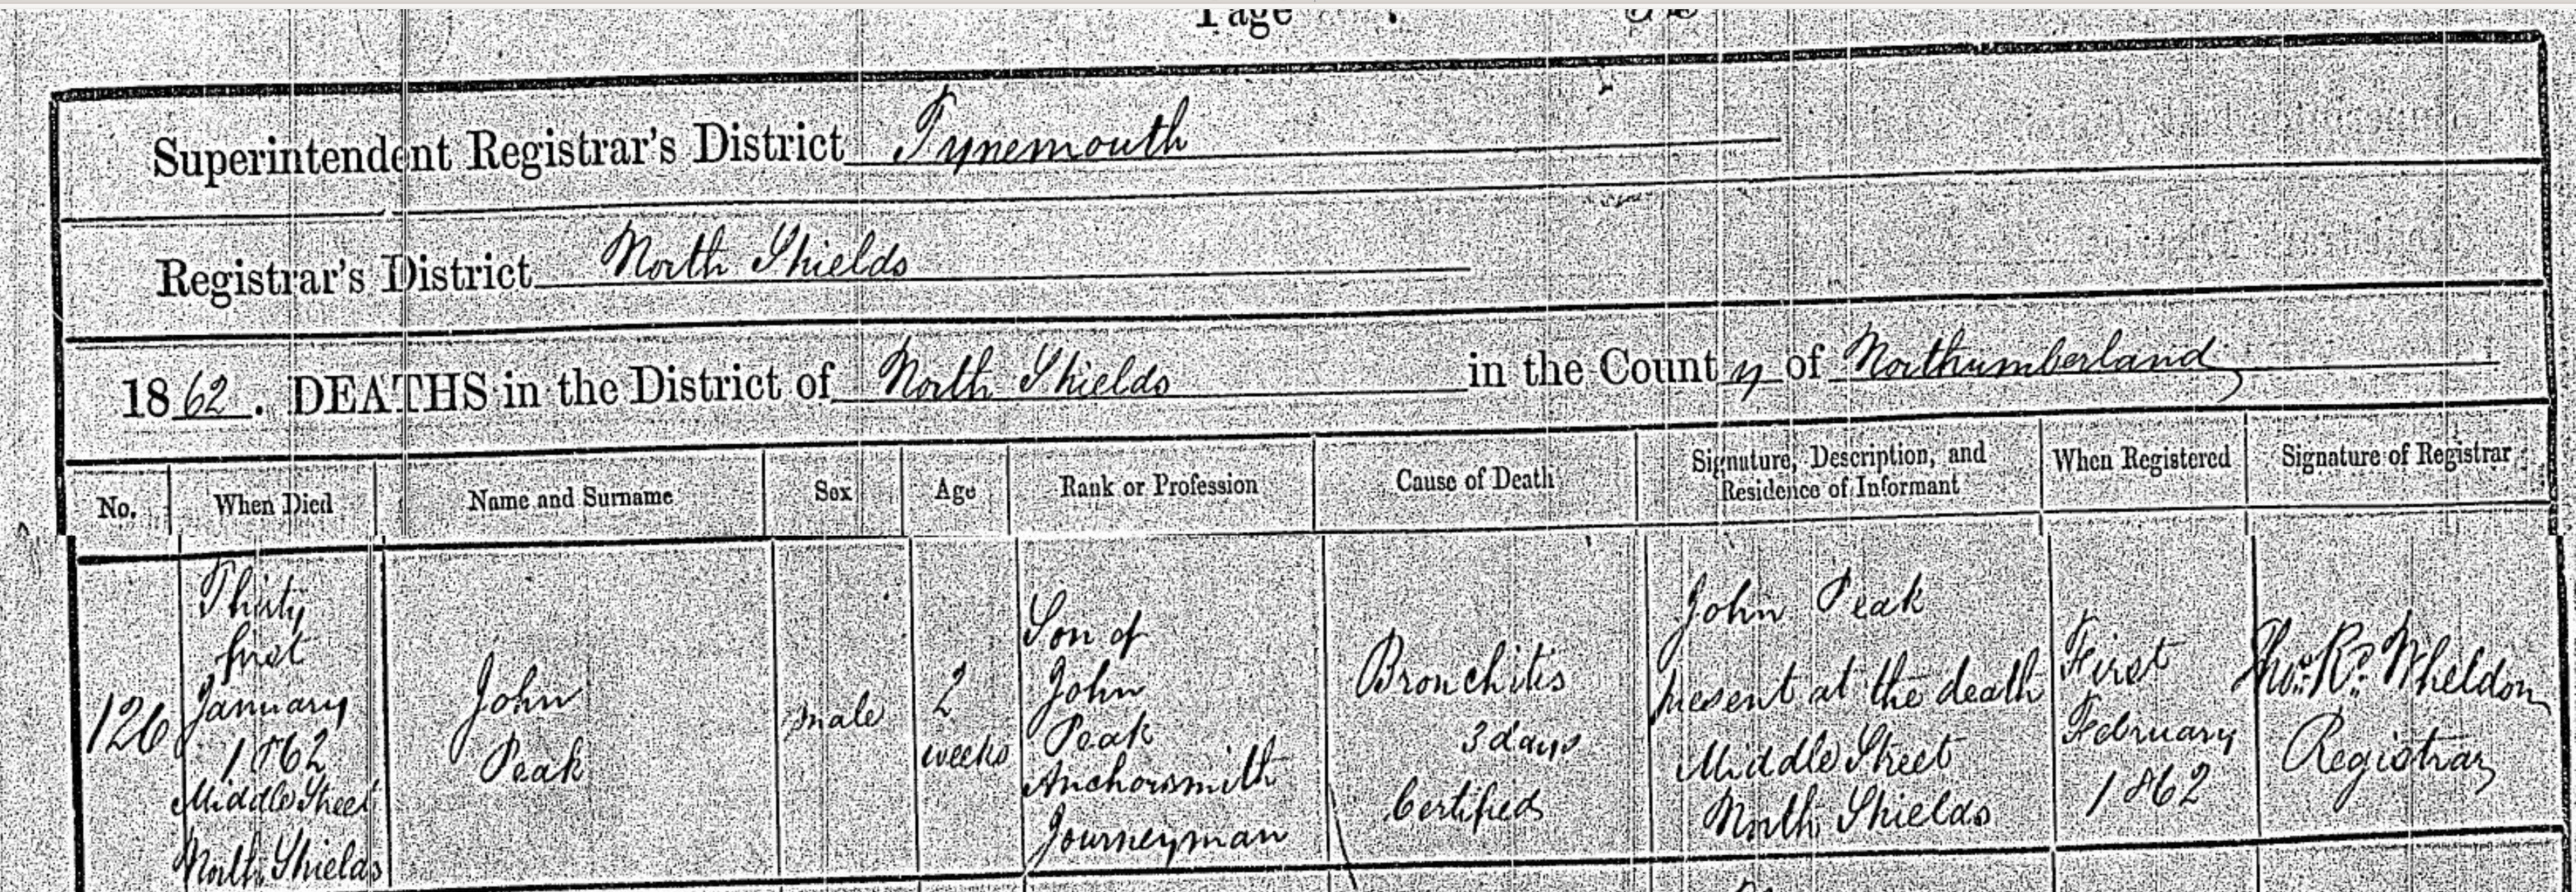 Page
Superintendent Registrar's District Tynemouth
Registrar's District North Shields
1862. DEATHS in the District of North Shields in the County of Northumberland
No.
When Died
Name and Surname
Sex
Age
Rank or Profession
Cause of Death
Signature, Description, and
Residence of Informant
When Registered
Signature of Registrar
126
Thirty
first
January
1862
Middle Street
North Shields
John
Peak
male
2
weeks
Son of
John
Peak
Anchorsmith
Journeyman
Bronchitis
3 days
Certified
John Peak
present at the death
Middle Street
North Shields
First
February
1862
Thos. Rd. Wheldon
Registrar